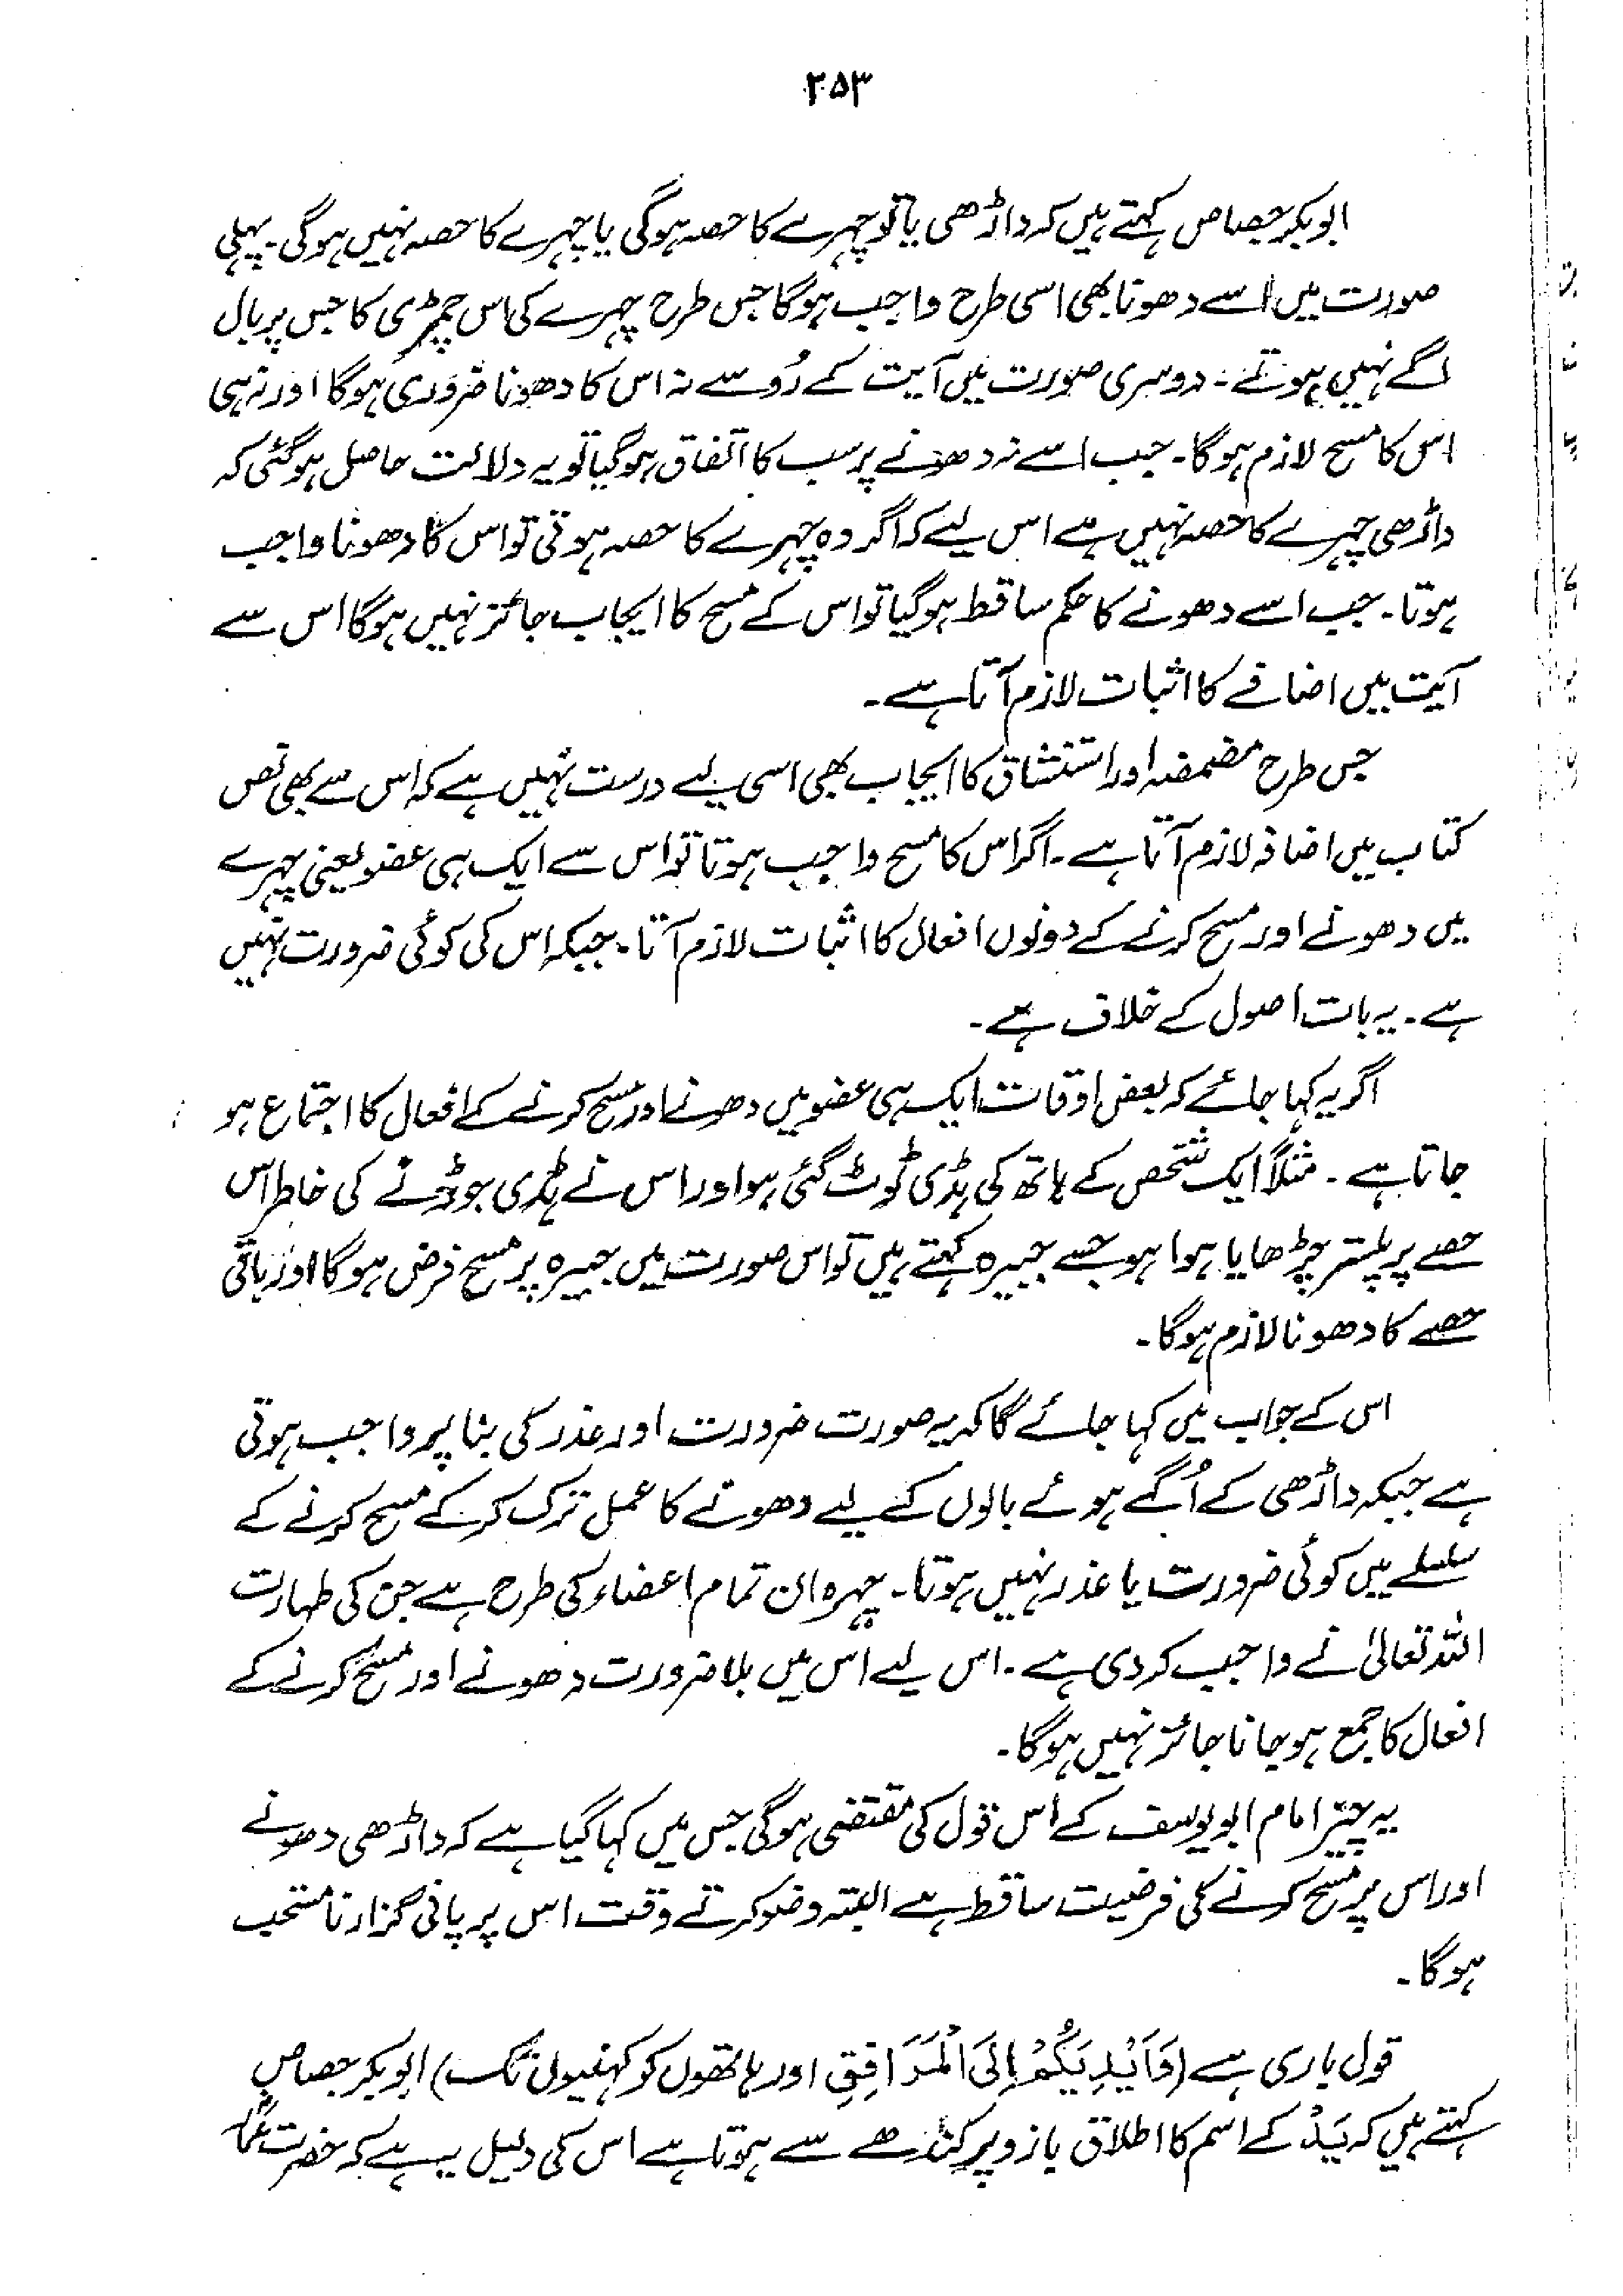 ۲۵۳
ابوبکر جصاص کہتے ہیں کہ داڑھی یا تو چہرے کا حصہ ہوگی یا چہرے کا حصہ نہیں ہوگی۔ پہلی
صورت میں اسے دھونا بھی اسی طرح واجب ہوگا جس طرح چہرے کی اس چمڑی کا جس پر بال
اگے نہیں ہوتے۔ دوسری صورت میں آیت کے رُو سے نہ اس کا دھونا ضروری ہوگا اور نہ ہی
اس کا مسح لازم ہوگا۔ جب اسے نہ دھونے پر سب کا اتفاق ہوگیا تو یہ دلالت حاصل ہوگئی کہ
داڑھی چہرے کا حصہ نہیں ہے اس لیے کہ اگر وہ چہرے کا حصہ ہوتی تو اس کا دھونا واجب
ہوتا۔ جب اسے دھونے کا حکم ساقط ہوگیا تو اس کے مسح کا ایجاب جائز نہیں ہوگا اس سے
آیت میں اضافے کا اثبات لازم آتا ہے۔
جس طرح مضمضہ اور استنشاق کا ایجاب بھی اسی لیے درست نہیں ہے کہ اس سے بھی نص
کتاب میں اضافہ لازم آتا ہے۔ اگر اس کا مسح واجب ہوتا تو اس سے ایک ہی عضو یعنی چہرے
میں دھونے اور مسح کرنے کے دونوں افعال کا اثبات لازم آتا۔ جبکہ اس کی کوئی ضرورت نہیں
ہے۔ یہ بات اصول کے خلاف ہے۔
اگر یہ کہا جائے کہ بعض اوقات ایک ہی عضو میں دھونے اور مسح کرنے کے افعال کا اجتماع ہو
جاتا ہے۔ مثلاً ایک شخص کے ہاتھ کی ہڈی ٹوٹ گئی ہو اور اس نے ہڈی جوڑنے کی خاطر اس
حصے پر پلستر چڑھایا ہوا ہو جسے جبیرہ کہتے ہیں تو اس صورت میں جبیرہ پر مسح فرض ہوگا اور باقی
حصے کا دھونا لازم ہوگا۔
اس کے جواب میں کہا جائے گا کہ یہ صورت ضرورت اور عذر کی بنا پر واجب ہوتی
ہے جبکہ داڑھی کے اُگے ہوئے بالوں کے لیے دھونے کا عمل ترک کر کے مسح کرنے کے
سلسلے میں کوئی ضرورت یا عذر نہیں ہوتا۔ چہرہ ان تمام اعضاء کی طرح ہے جن کی طہارت
اللہ تعالیٰ نے واجب کردی ہے۔ اس لیے اس میں بلا ضرورت دھونے اور مسح کرنے کے
افعال کا جمع ہو جانا جائز نہیں ہوگا۔
یہ چیز امام ابو یوسف کے اس قول کی مقتضی ہوگی جس میں کہا گیا ہے کہ داڑھی دھونے
اور اس پر مسح کرنے کی فرضیت ساقط ہے البتہ وضو کرتے وقت اس پر پانی گزارنا مستحب
ہوگا۔
قول باری ہے (وَاَيْدِيَكُمْ اِلَى الْمَرَافِقِ اور ہاتھوں کو کہنیوں تک) ابوبکر جصاص
کہتے ہیں کہ یَدْ کے اسم کا اطلاق بازو پر کندھے سے ہوتا ہے اس کی دلیل یہ ہے کہ حضرت عمارؓ